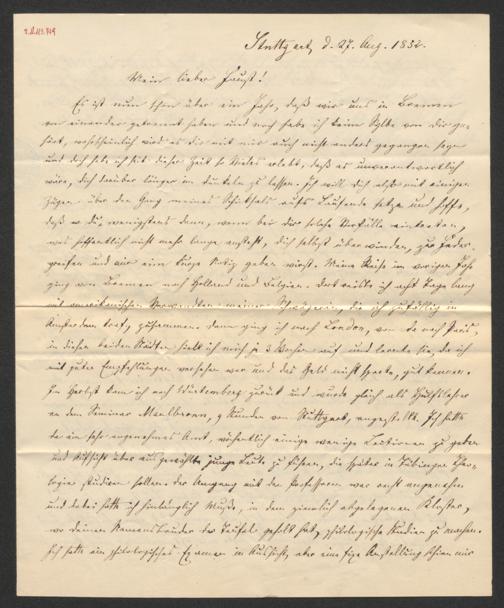 Stuttgart, d. 27. Aug. 1852.
Mein lieber Faust!
Es ist nun schon über ein Jahr, daß wir uns in Bremen
von einander getrennt haben und noch habe ich keine Sylbe von dir ge-
hört, wahrscheinlich wird es dir mit mir auch nicht anders gegangen seyn
und doch habe ich seit dieser Zeit so Vieles erlebt, daß es unverantwortlich
wäre, dich darüber länger im dunkeln zu lassen. Ich will dich also mit einigen
Zügen über den Gang meines Schicksals aufs Laufende setzen und hoffe,
daß du, wenigstens dann, wenn bei dir solche Vorfälle eintreten,
was hoffentlich nicht mehr lange ansteht, dich selbst überwinden, zur Feder
greifen und mir eine kurze Notiz geben wirst. Meine Reise im vorigen Jahr
ging von Bremen nach Holland und Belgien. Dort reiste ich acht Tage lang
mit amerikanischen Verwandten meiner Schwägerin, die ich zufällig in
Amsterdam traf, zusammen. Dann ging ich nach London, von da nach Paris,
in diesen beiden Städten hielt ich mich je 3 Wochen auf und lernte sie, da ich
mit guten Empfehlungen versehen war und das Geld nicht sparte, gut kennen.
Im Herbst kam ich nach Württemberg zurück und wurde gleich als Hilfslehrer
an dem Seminar Maulbronn, 9 Stunden von Stuttgart, angestellt. Ich hatte
da ein sehr angenehmes Amt, wöchentlich einige wenige Lectionen zu geben
und Aufsicht über ausgewählte junge Leute zu führen, die später in Tübingen Theo-
logie studiren sollen. Der Umgang mit den Professoren war recht angenehm
und dabei hatte ich hinlänglich Muße, in dem ziemlich abgelegenen Kloster,
wo deinen Namensbruder der Teufel geholt hat, philologische Studien zu machen.
Ich hatte ein philologisches Examen in Aussicht, aber eine fixe Anstellung schien mir